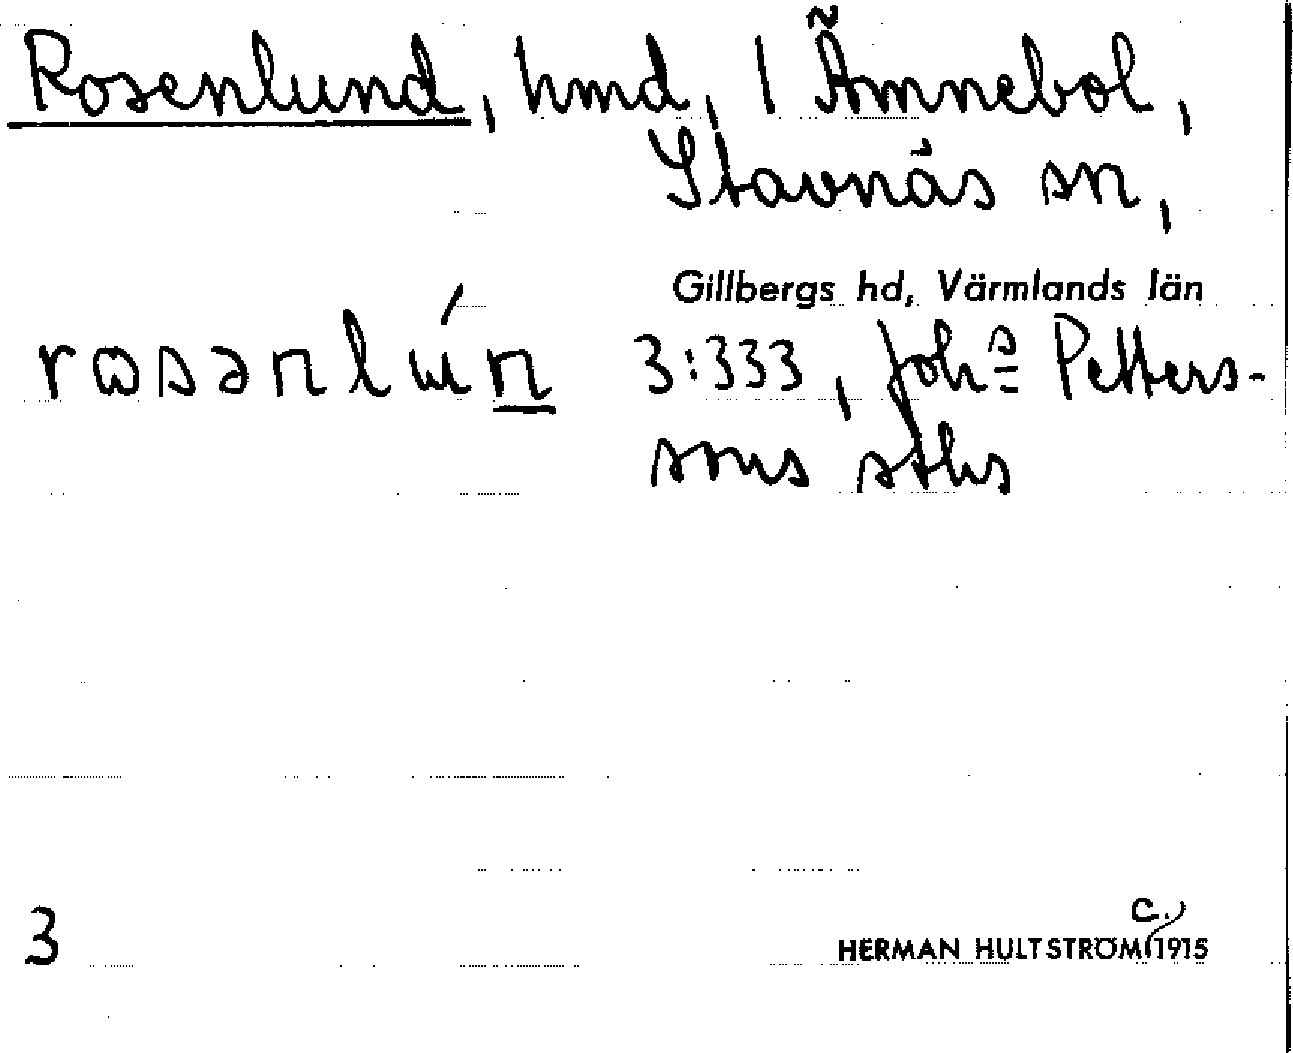 Rosenlund, hmd, 1 Ämnebol,
Stavnäs sn,
Gillbergs hd, Värmlands län
rosənlún 3:333, Johs Petters-
sons sths
3
c.
HERMAN HULTSTRÖM 1915